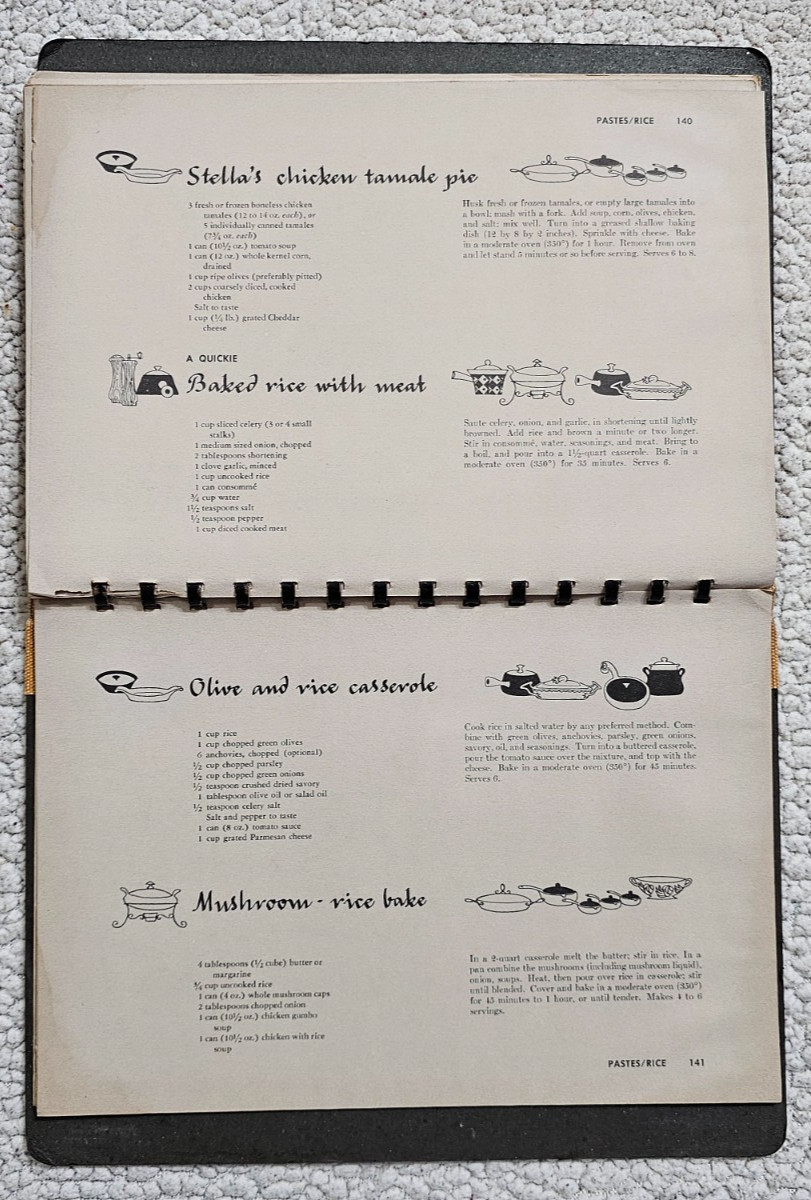 PASTES/RICE 140
Stella's chicken tamale pie
3 fresh or frozen boneless chicken
tamales (12 to 14 oz. each), or
5 individually canned tamales
(7¾ oz. each)
1 can (10½ oz.) tomato soup
1 can (12 oz.) whole kernel corn,
drained
1 cup ripe olives (preferably pitted)
2 cups coarsely diced, cooked
chicken
Salt to taste
1 cup (¼ lb.) grated Cheddar
cheese
Husk fresh or frozen tamales, or empty large tamales into
a bowl; mash with a fork. Add soup, corn, olives, chicken,
and salt; mix well. Turn into a greased shallow baking
dish (12 by 8 by 2 inches). Sprinkle with cheese. Bake
in a moderate oven (350°) for 1 hour. Remove from oven
and let stand 5 minutes or so before serving. Serves 6 to 8.
A QUICKIE
Baked rice with meat
1 cup sliced celery (3 or 4 small
stalks)
1 medium sized onion, chopped
2 tablespoons shortening
1 clove garlic, minced
1 cup uncooked rice
1 can consommé
¾ cup water
1½ teaspoons salt
½ teaspoon pepper
1 cup diced cooked meat
Saute celery, onion, and garlic, in shortening until lightly
browned. Add rice and brown a minute or two longer.
Stir in consommé, water, seasonings, and meat. Bring to
a boil, and pour into a 1½-quart casserole. Bake in a
moderate oven (350°) for 35 minutes. Serves 6.
Olive and rice casserole
1 cup rice
1 cup chopped green olives
6 anchovies, chopped (optional)
½ cup chopped parsley
½ cup chopped green onions
½ teaspoon crushed dried savory
1 tablespoon olive oil or salad oil
½ teaspoon celery salt
Salt and pepper to taste
1 can (8 oz.) tomato sauce
1 cup grated Parmesan cheese
Cook rice in salted water by any preferred method. Com-
bine with green olives, anchovies, parsley, green onions,
savory, oil, and seasonings. Turn into a buttered casserole,
pour the tomato sauce over the mixture, and top with the
cheese. Bake in a moderate oven (350°) for 45 minutes.
Serves 6.
Mushroom - rice bake
4 tablespoons (½ cube) butter or
margarine
¾ cup uncooked rice
1 can (4 oz.) whole mushroom caps
2 tablespoons chopped onion
1 can (10½ oz.) chicken gumbo
soup
1 can (10½ oz.) chicken with rice
soup
In a 2-quart casserole melt the butter; stir in rice. In a
pan combine the mushrooms (including mushroom liquid),
onion, soups. Heat, then pour over rice in casserole; stir
until blended. Cover and bake in a moderate oven (350°)
for 45 minutes to 1 hour, or until tender. Makes 4 to 6
servings.
PASTES/RICE 141